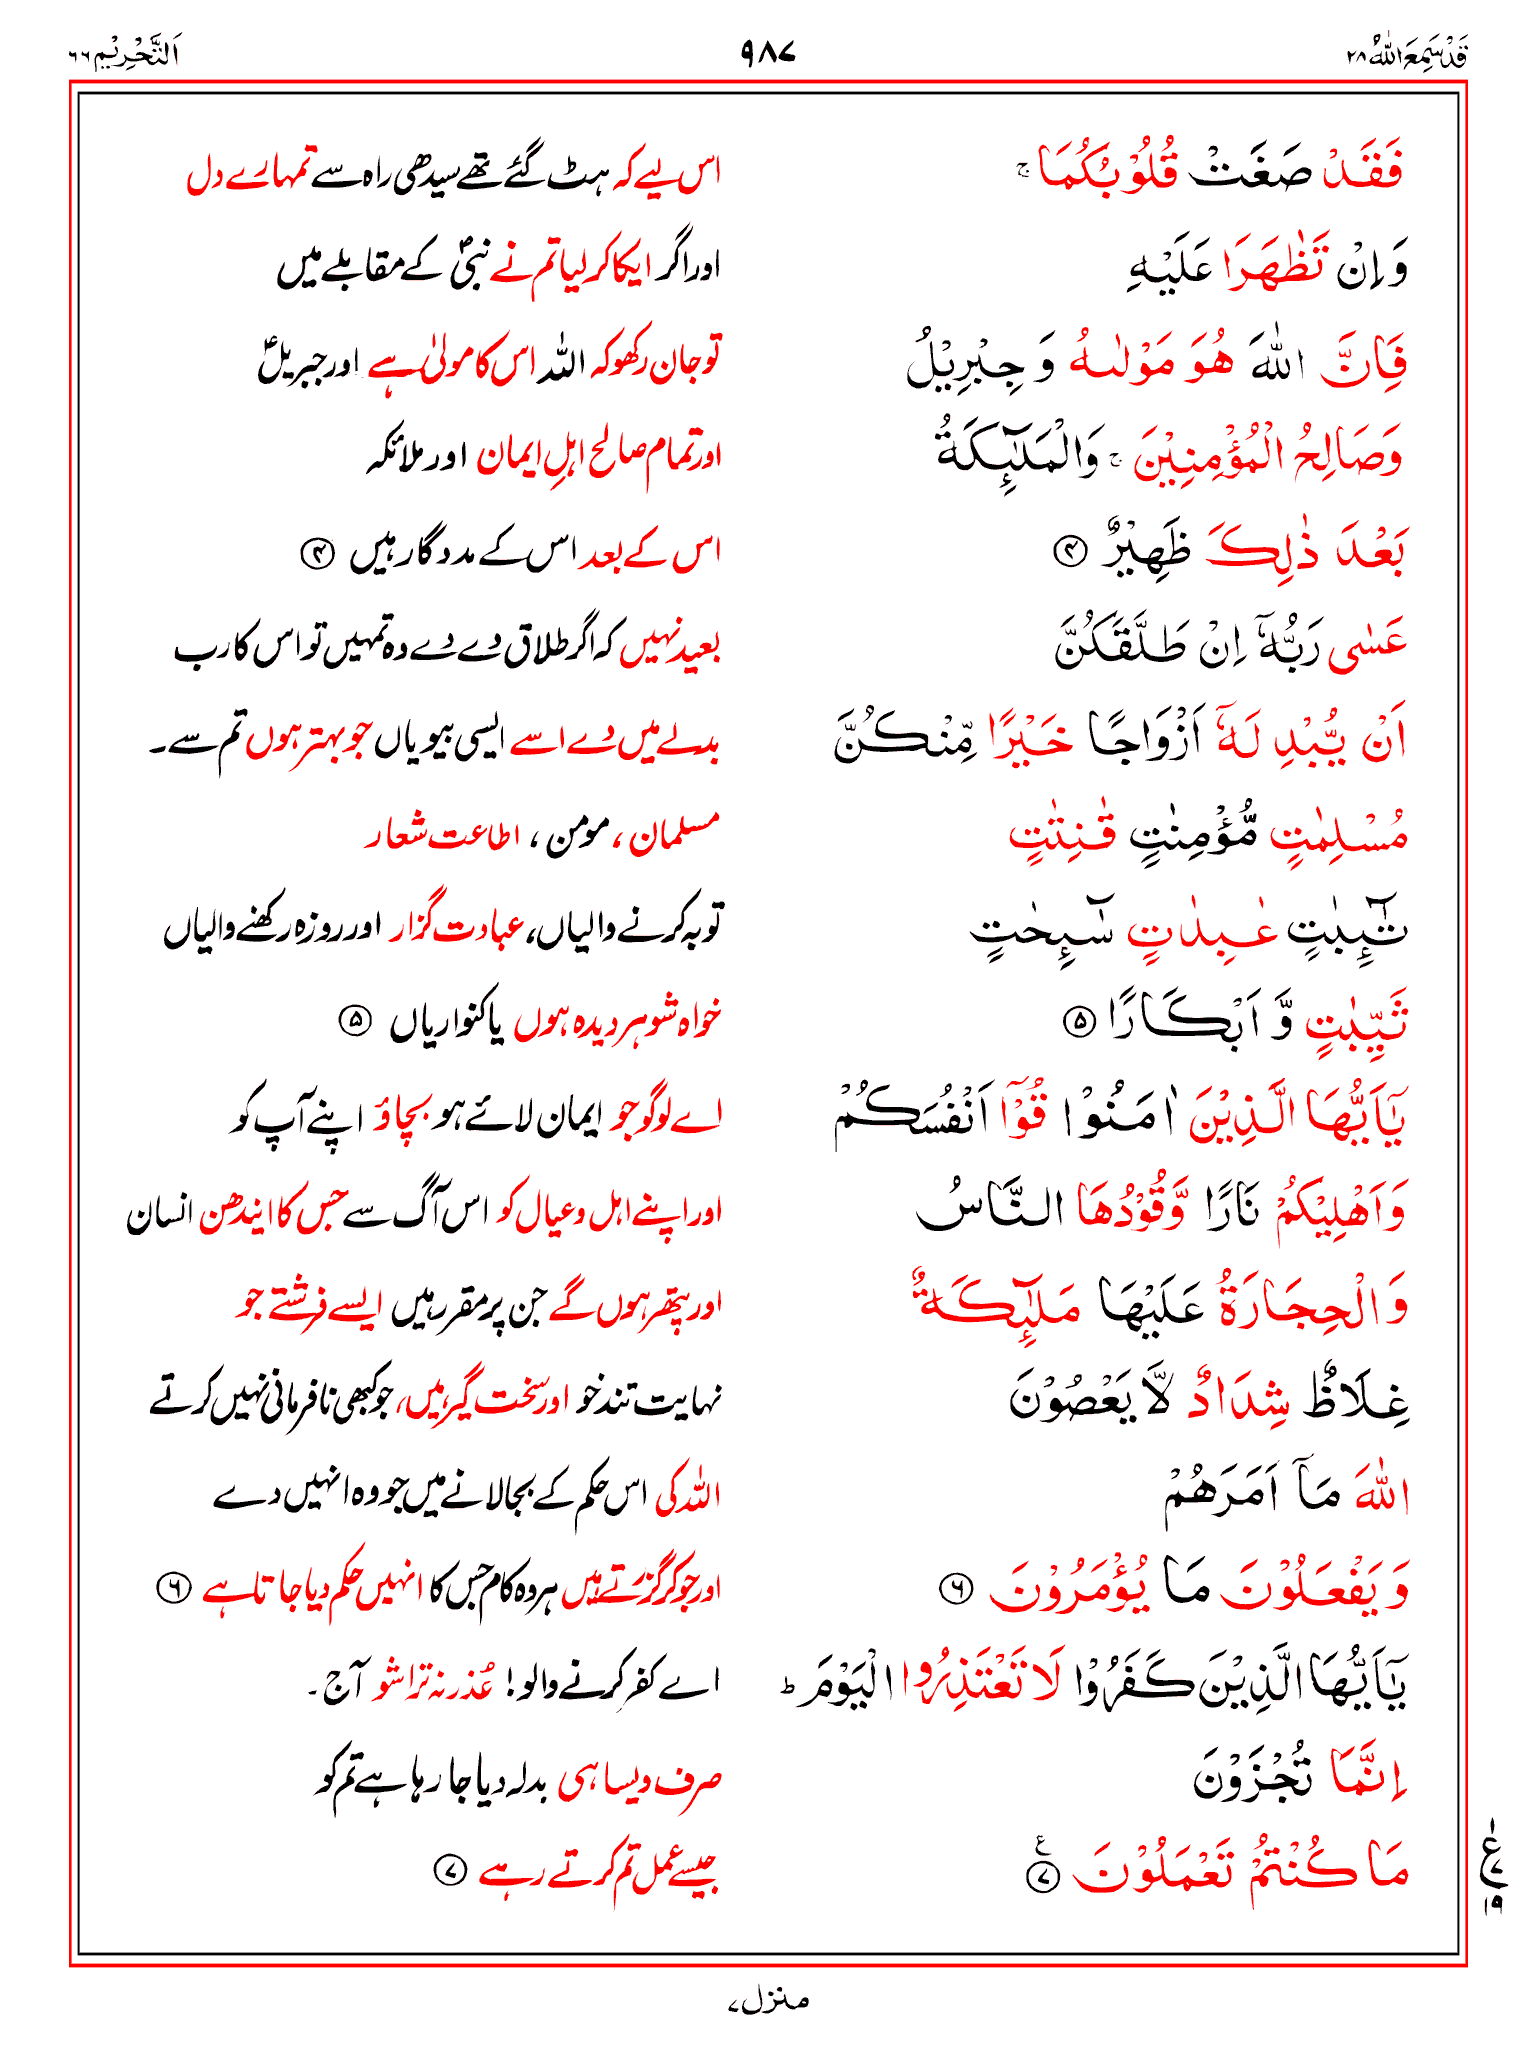 قَدْ سَمِعَ اللّٰهُ ۲۸ ۹۸۷ اَلتَّحْرِيْم ۶۶
فَقَدْ صَغَتْ قُلُوْبُكُمَا ۚ اس لیے کہ ہٹ گئے تھے سیدھی راہ سے تمہارے دل
وَاِنْ تَظٰهَرَا عَلَيْهِ اور اگر ایکا کرلیا تم نے نبیؐ کے مقابلے میں
فَاِنَّ اللّٰهَ هُوَ مَوْلٰىهُ وَ جِبْرِيْلُ تو جان رکھو کہ اللہ اس کا مولیٰ ہے اور جبریلؑ
وَصَالِحُ الْمُؤْمِنِيْنَ ۚ وَالْمَلٰٓئِكَةُ اور تمام صالح اہلِ ایمان اور ملائکہ
بَعْدَ ذٰلِكَ ظَهِيْرٌ ۴ اس کے بعد اس کے مددگار ہیں ۴
عَسٰى رَبُّهٗٓ اِنْ طَلَّقَكُنَّ بعید نہیں کہ اگر طلاق دے دے وہ تمہیں تو اس کا رب
اَنْ يُّبْدِلَهٗٓ اَزْوَاجًا خَيْرًا مِّنْكُنَّ بدلے میں دے اسے ایسی بیویاں جو بہتر ہوں تم سے۔
مُسْلِمٰتٍ مُّؤْمِنٰتٍ قٰنِتٰتٍ مسلمان ، مومن ، اطاعت شعار
تٰٓئِبٰتٍ عٰبِدٰتٍ سٰٓئِحٰتٍ توبہ کرنے والیاں، عبادت گزار اور روزہ رکھنے والیاں
ثَيِّبٰتٍ وَّ اَبْكَارًا ۵ خواہ شوہر دیدہ ہوں یا کنواریاں ۵
يٰٓاَيُّهَا الَّذِيْنَ اٰمَنُوْا قُوْٓا اَنْفُسَكُمْ اے لوگو جو ایمان لائے ہو بچاؤ اپنے آپ کو
وَاَهْلِيْكُمْ نَارًا وَّقُوْدُهَا النَّاسُ اور اپنے اہل وعیال کو اس آگ سے جس کا ایندھن انسان
وَالْحِجَارَةُ عَلَيْهَا مَلٰٓئِكَةٌ اور پتھر ہوں گے جن پر مقرر ہیں ایسے فرشتے جو
غِلَاظٌ شِدَادٌ لَّا يَعْصُوْنَ نہایت تند خو اور سخت گیر ہیں، جو کبھی نافرمانی نہیں کرتے
اللّٰهَ مَآ اَمَرَهُمْ اللہ کی اس حکم کے بجالانے میں جو وہ انہیں دے
وَيَفْعَلُوْنَ مَا يُؤْمَرُوْنَ ۶ اور جو کر گزرتے ہیں ہر وہ کام جس کا انہیں حکم دیا جاتا ہے ۶
يٰٓاَيُّهَا الَّذِيْنَ كَفَرُوْا لَا تَعْتَذِرُوا الْيَوْمَ ؕ اے کفر کرنے والو! عُذر نہ تراشو آج۔
اِنَّمَا تُجْزَوْنَ صرف ویسا ہی بدلہ دیا جا رہا ہے تم کو
مَا كُنْتُمْ تَعْمَلُوْنَ ۷ ع جیسے عمل تم کرتے رہے ۷
ع ۱ ۷ ۱۹
منزل ۷